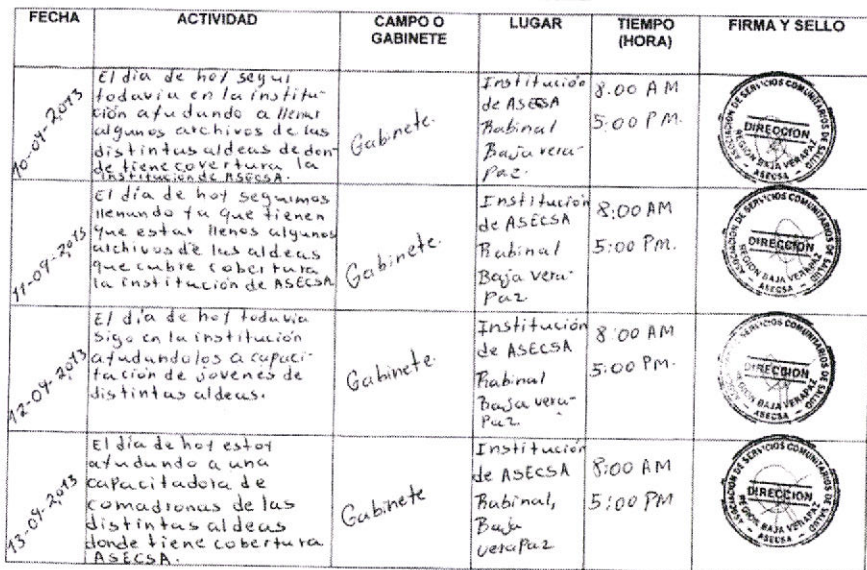 FECHA ACTIVIDAD CAMPO O GABINETE LUGAR TIEMPO (HORA) FIRMA Y SELLO
10-09-2,013
El día de hoy seguí
todavia en la institu-
ción ayudando a llenar
algunos archivos de las
distintas aldeas de don-
de tiene covertura la
institución de ASECSA.
Gabinete.
Institución
de ASECSA
Rabinal
Baja vera-
paz.
8:00 AM
5:00 PM.
ASOCIACIÓN DE SERVICIOS COMUNITARIOS DE SALUD
DIRECCION
REGION BAJA VERAPAZ
- ASECSA -
11-09-2,013
El día de hoy seguimos
llenando ya que tienen
que estar llenos algunos
archivos de las aldeas
que cubre cobertura
la institución de ASECSA
Gabinete.
Institución
de ASECSA
Rabinal
Baja Vera-
Paz
8:00 AM
5:00 PM.
ASOCIACIÓN DE SERVICIOS COMUNITARIOS DE SALUD
DIRECCION
REGION BAJA VERAPAZ
- ASECSA -
12-09-2,013
El día de hoy todavia
sigo en la institución
ayudandolos a capaci-
tación de jovenes de
distintas aldeas.
Gabinete.
Institución
de ASECSA
Rabinal
Baja vera-
Paz.
8:00 AM
5:00 PM.
ASOCIACIÓN DE SERVICIOS COMUNITARIOS DE SALUD
DIRECCION
REGION BAJA VERAPAZ
- ASECSA -
13-09-2,013
El día de hoy estoy
ayudando a una
capacitadora de
comadronas de las
distintas aldeas
donde tiene cobertura
ASECSA.
Gabinete
Institución
de ASECSA
Rabinal,
Baja
verapaz
8:00 AM
5:00 PM
ASOCIACIÓN DE SERVICIOS COMUNITARIOS DE SALUD
DIRECCION
REGION BAJA VERAPAZ
- ASECSA -